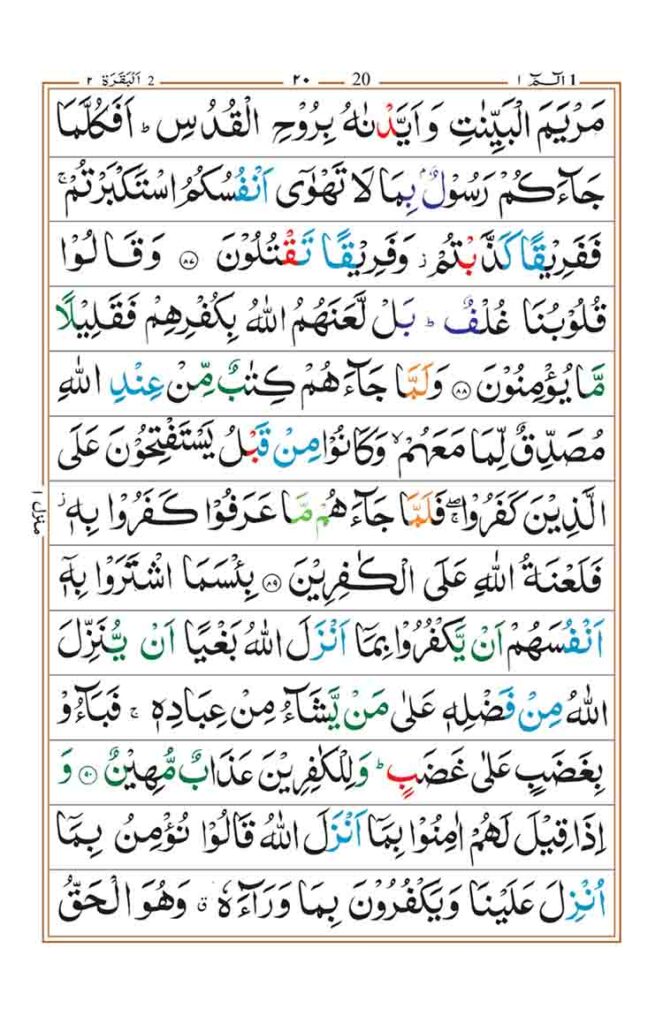 1 الٓمّٓ ١ 20 ٢٠ 2 اَلْبَقَرَة ٢
مَرْيَمَ الْبَيِّنٰتِ وَاَيَّدْنٰهُ بِرُوْحِ الْقُدُسِ ؕ اَفَكُلَّمَا
جَآءَكُمْ رَسُوْلٌۢ بِمَا لَا تَهْوٰٓى اَنْفُسُكُمُ اسْتَكْبَرْتُمْ ۚ
فَفَرِيْقًا كَذَّبْتُمْ ؗ وَفَرِيْقًا تَقْتُلُوْنَ ﴿٨٧﴾ وَقَالُوْا
قُلُوْبُنَا غُلْفٌ ؕ بَلْ لَّعَنَهُمُ اللّٰهُ بِكُفْرِهِمْ فَقَلِيْلًا
مَّا يُؤْمِنُوْنَ ﴿٨٨﴾ وَلَمَّا جَآءَهُمْ كِتٰبٌ مِّنْ عِنْدِ اللّٰهِ
مُصَدِّقٌ لِّمَا مَعَهُمْ ۙ وَكَانُوْا مِنْ قَبْلُ يَسْتَفْتِحُوْنَ عَلَى
الَّذِيْنَ كَفَرُوْا ۖۚ فَلَمَّا جَآءَهُمْ مَّا عَرَفُوْا كَفَرُوْا بِهٖ ؗ
فَلَعْنَةُ اللّٰهِ عَلَى الْكٰفِرِيْنَ ﴿٨٩﴾ بِئْسَمَا اشْتَرَوْا بِهٖٓ
اَنْفُسَهُمْ اَنْ يَّكْفُرُوْا بِمَآ اَنْزَلَ اللّٰهُ بَغْيًا اَنْ يُّنَزِّلَ
اللّٰهُ مِنْ فَضْلِهٖ عَلٰى مَنْ يَّشَآءُ مِنْ عِبَادِهٖ ۚ فَبَآءُوْ
بِغَضَبٍ عَلٰى غَضَبٍ ؕ وَلِلْكٰفِرِيْنَ عَذَابٌ مُّهِيْنٌ ﴿٩٠﴾ وَ
اِذَا قِيْلَ لَهُمْ اٰمِنُوْا بِمَآ اَنْزَلَ اللّٰهُ قَالُوْا نُؤْمِنُ بِمَآ
اُنْزِلَ عَلَيْنَا وَيَكْفُرُوْنَ بِمَا وَرَآءَهٗ ۗ وَهُوَ الْحَقُّ
منزل ١